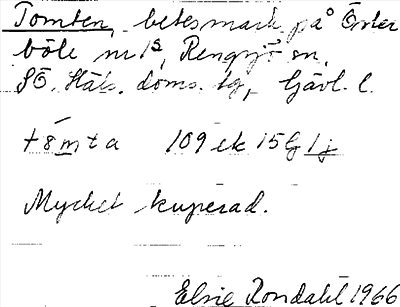 Tomten, betesmark på Öster
böle nr 12, Rengsjö sn,
SÖ. Häls. doms. tg, Gävl. l.
tömta 109 ek 15G 1j
Mycket kuperad.
Elsie Rondahl 1966